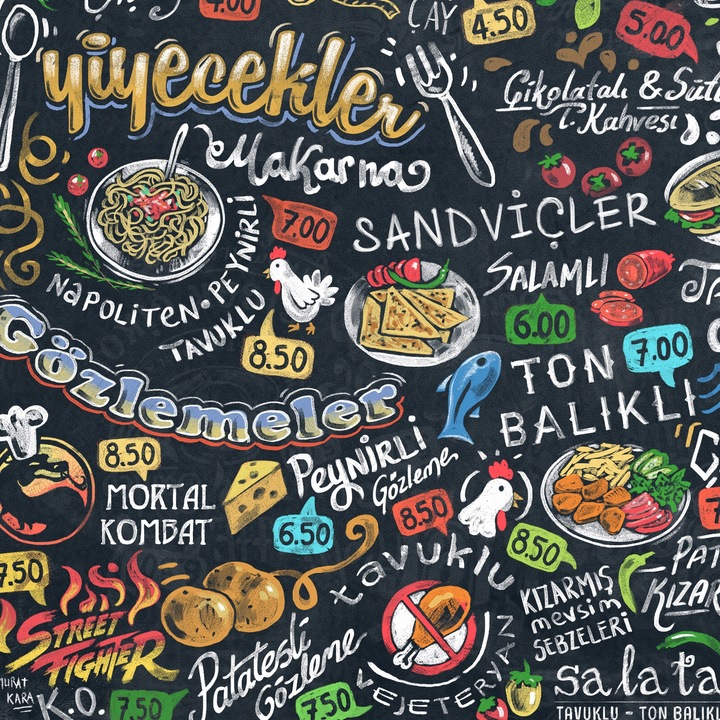 4.00
ÇAY
4.50
5.00
yiyecekler
Çikolatalı & Süt
T. Kahvesı
Makarna
7.00
SANDVİÇLER
NAPOLİTEN • PEYNİRLİ
TAVUKLU
8.50
SALAMLI
6.00
TON
BALIKLI
7.00
Gözlemeler
8.50
MORTAL
KOMBAT
PEYNİRLİ
Gözleme
6.50
8.50
tavuklu
VEJETERYAN
8.50
KIZARMIŞ
mevsim
SEBZELERİ
PAT
KIZAR
7.50
STREET
FIGHTER
MURAT
KARA
K.O.
7.50
Patatesli
Gözleme
7.50
salata
TAVUKLU - TON BALIKLI